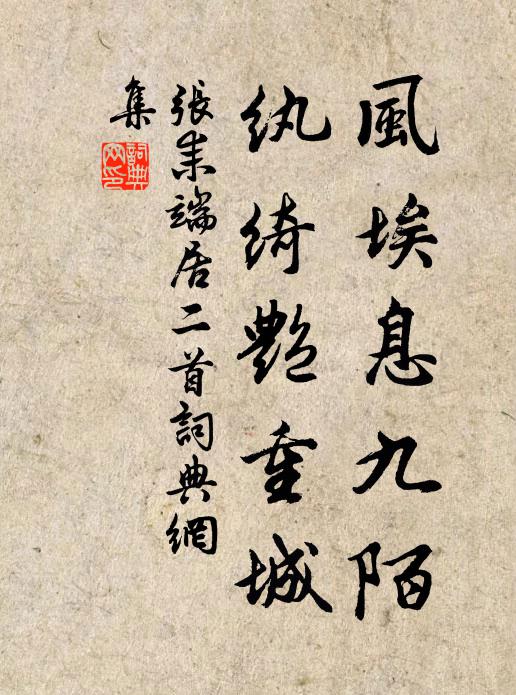 風埃息九陌
紈綺艷重城
張耒端居二首詞典網
集
詞典網印